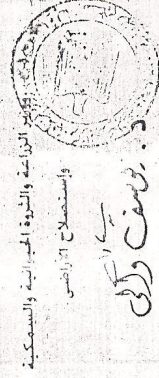 وزير الزراعة والثروة الحيوانية والسمكية
واستصلاح الأراضى
د. يوسف والى